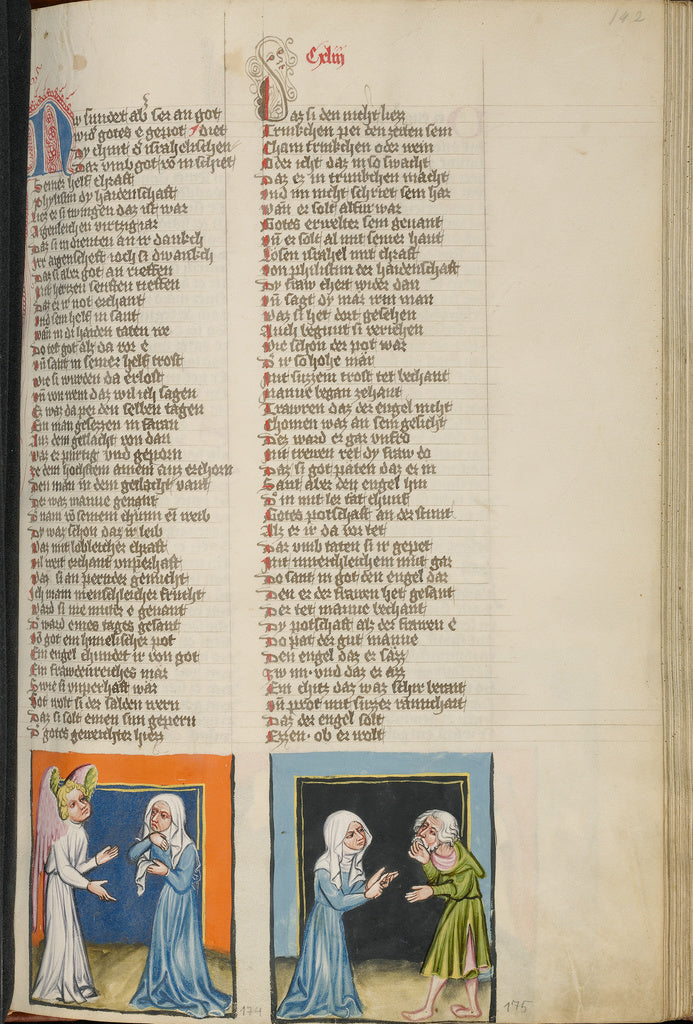 142
Cxliij
Nv sundet aber ser an got
wid gotes e gepot diet
Dy chint d israhelischen
Dar vmb got vō in schiet
Seiner helf chraft
Phylistin dy haidenschaft
Liez er si twingen daz ist war
Aigenleichen virtzig iar
Daz si in dienten an ir danckch
Daz si aber got an rieften
Mit hertzen seuften tieffen
Daz er ir not erchant
Vnd sein helf in sant
Wan in di haiden taten we
Do tet got als da vor e
Vn sant in seiner helf trost
Wie si wurden da erlost
Vn von wem daz wil ich sagen
Ez waz da pei den selben tagen
Ein man gesezzen in
Auz dem geslächt von dan
Waz er purtig vnd geporn
Ze dem hochstem auz erchorn
Den man in dem geslächt vant
Der waz manue genant
D nam vō seinem chunn ei weib
Dy waz schon daz ir leib
Waz mit lobleicher chraft
Vil weit erchant vnperhaft
Waz si an perunder genucht
Ich main menschleicher frucht
Ward si nie muter e genant
D ward eines tages gesant
Vō got ein himelischer pot
Ein engel chundet ir von got
Ein frawdenreiches mär
Swie si vnperhaft wär
Got wolt si der sälden wern
Daz si solt einen sun gepern
D gotes geweichter hiezz
Daz si den nicht liez
Trinkchen pei den zeiten sein
Chain trinkchen oder wein
Oder icht daz in so swacht
Daz er in trunkchen macht
Vnd im nicht schriet sein har
Wan er solt alfur war
Gotes erwelter sein genant
Vn er solt al mit seiner hant
Losen israhel mit chraft
Von philistim der haidenschaft
Dy fraw chert wider dan
Vn sagt dy mär irm man
Waz si het dort gesehen
Auch begunt si veriehen
Wie schon der pot wär
D ir so hohe mär
Mit suzzem trost tet bechant
Manue began zehant
Trawren daz der engel nicht
Chomen waz an sein gesicht
Des ward er gar vnfro
Mit trewen ret dy fraw do
Daz si got paten daz er in
Sant aber den engel hin
D in mit ler tät chunt
Gotes potschaft an der stunt
Als er ir da vor tet
Dar vmb taten si ir gepet
Mit innerchleichem mut gar
Do sant in got den engel dar
Den er der frawen het gesant
Der tet manue bechant
Dy potschaft als der frawen e
Do pat der gut manue
Den engel daz er sazz
Zw im vnd daz er azz
Ein chitz daz waz schir berait
Vn prot mit suzzer
Daz der engel solt
Ezzen ob er wolt
174
175